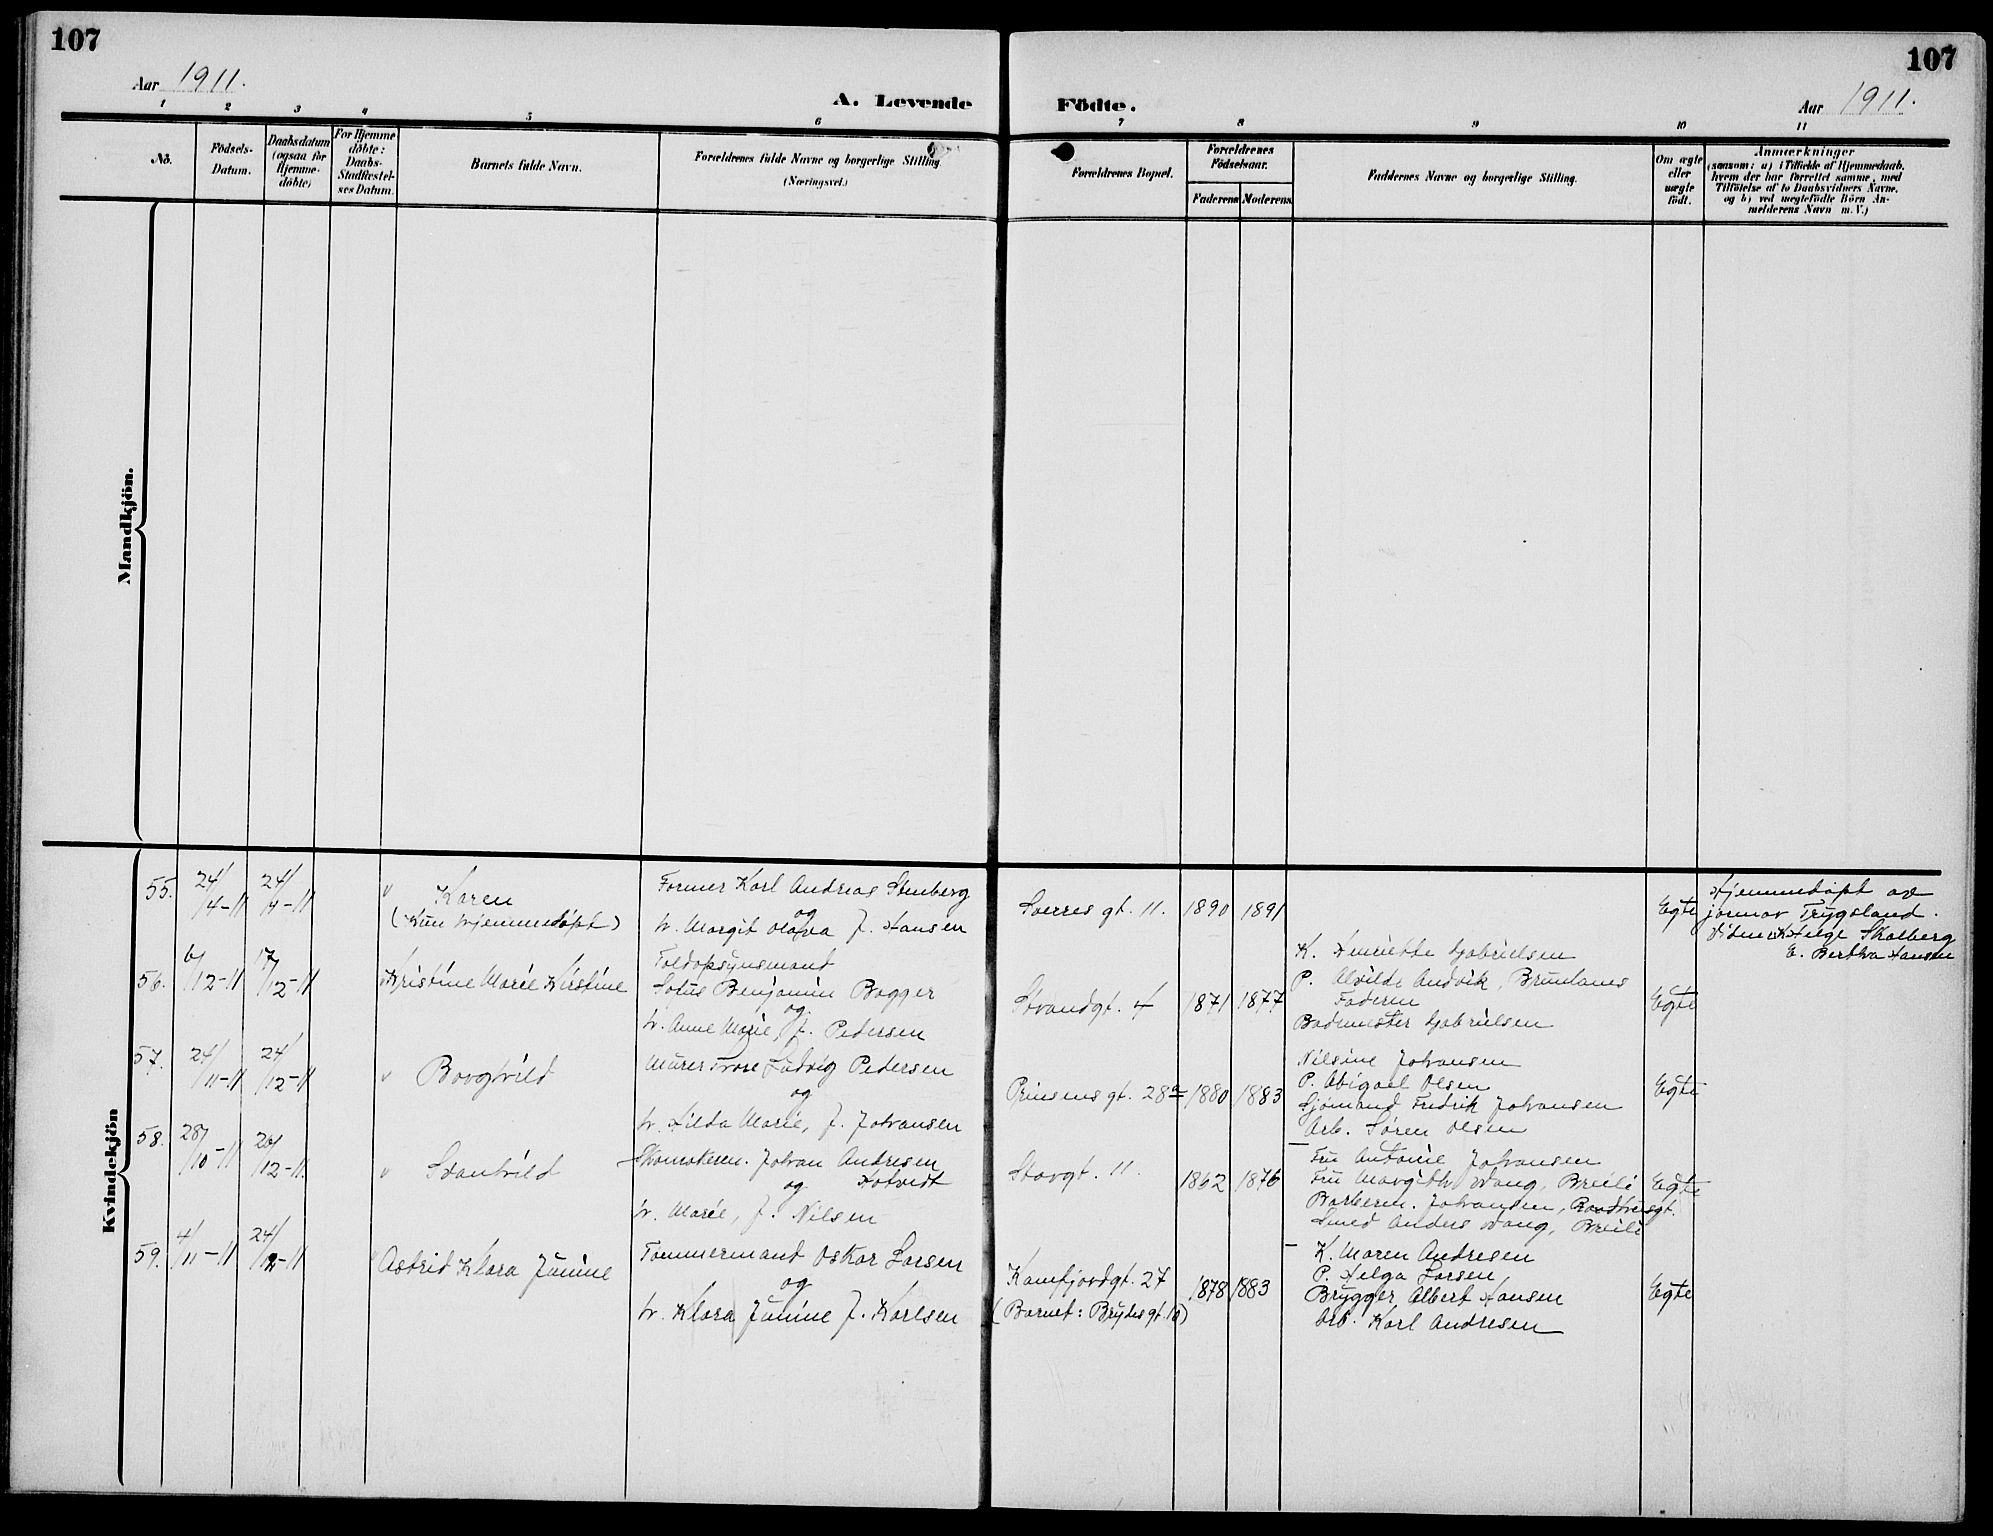 107
107
Aar 1911.
A. Levende Födte.
Aar 1911.
1 2 3 4 5 6 7 8 9 10 11
No.
Födsels-
Datum.
Daabsdatum
(ogsaa for
Hjemme-
döbte)
For Hjemme
döbte:
Daabs-
Stadfæstel-
ses Datum.
Barnets fulde Navn.
Forældrenes fulde Navne og borgerlige Stilling
(Næringsvei.)
Forældrenes Bopæl.
Forældrenes
Födselsaar.
Faderens Moderens
Faddernes Navne og borgerlige Stilling.
Om ægte
eller
uægte
födt.
Anmærkninger
(saasom: a) i Tilfælde af Hjemmedaab,
hvem der har forrettet samme, med
Tilföielse af to Daabsvidners Navne,
og b) ved uægtefödte Börn An-
melderens Navn m. V.)
Mandkjön.
Kvindekjön
55. 24/4-11 24/4-11
Karen
(Kun hjemmedöpt)
Former Karl Andreas Stenberg
og
h. Margit Olava f. Hansen
Sverres gt. 11. 1890 1891
Egte
Hjemmedöpt av
jormor Trygsland.
Vidner: Helge Skalberg
E. Bertha Hansen
56. 6/12-11 17/12-11
Kristine Marie Kirstine
Toldopsynsmand
Sofus Benjamin Bagger
og
h. Anne Marie, f. Pedersen
Strandgt. 4 1871 1877
K. Henriette Gabrielsen
P. Alvilde Andvik, Brunlanes
Faderen
Bademester Gabrielsen
Egte
57. 24/11-11 24/12-11
Borghild
Murer Tore Ludvig Pedersen
og
h. Hilda Marie, f. Johansen
Prinsens gt. 28a 1880 1883
Nilsine Johansen
P. Abigael Olsen
Sjömand Fredrik Johansen
Arb. Sören Olsen
Egte
58. 28/10-11 24/12-11
Svanhild
Skomakerm. Johan Andresen
og Hotvedt
h. Marie, f. Nilsen
Storgt. 11. 1862 1876
Fru Antonie Johansen
Fru Margith Wang, Breili
Barberm. Johansen,
Smed Anders Wang, Breili
Egte
59. 4/11-11 24/12-11
Astrid Klara Jumine
Tömmermand Oskar Larsen
og
h. Klara Jumine f. Karlsen
Kamfjordgt. 27
(Barnet: Brydes gt. 1a)
1878 1883
K. Maren Andresen
P. Helga Larsen
Brygger Albert Hansen
Arb. Karl Andresen
Egte